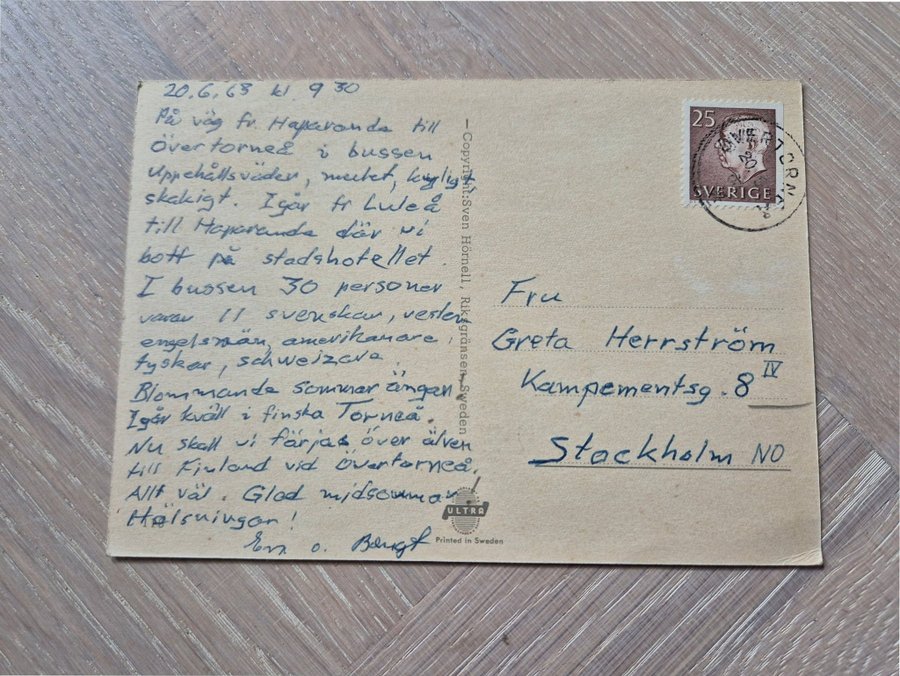 20.6.63 kl 9 30
På väg fr. Haparanda till
Övertorneå i bussen
Uppehållsväder, mulet, kyligt,
skakigt. Igår fr Luleå
till Haparanda där vi
bott på stadshotellet.
I bussen 30 personer
varav 11 svenskar, resten
engelsmän, amerikanare,
tyskar, schweizare.
Blommande sommarängar
Igår kväll i finska Torneå.
Nu skall vi färjas över älven
till Finland vid Övertorneå.
Allt väl. Glad midsommar
Hälsningar!
o. Bengt
Copyright: Sven Hörnell, Riksgränsen, Sweden
ULTRA
Printed in Sweden
25
SVERIGE
Fru
Greta Herrström
Kampementsg. 8 IV
Stockholm NO